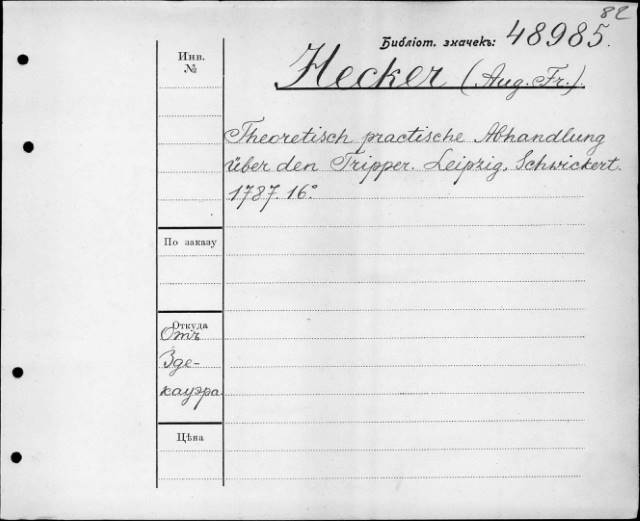 82
Библіот. значекъ: 48985.
Инв. №
Hecker (Aug. Fr.).
Theoretisch practische Abhandlung
über den Tripper. Leipzig, Schwickert.
1787. 16°
По заказу
Откуда
Отъ
Зде-
кауэра
Цѣна